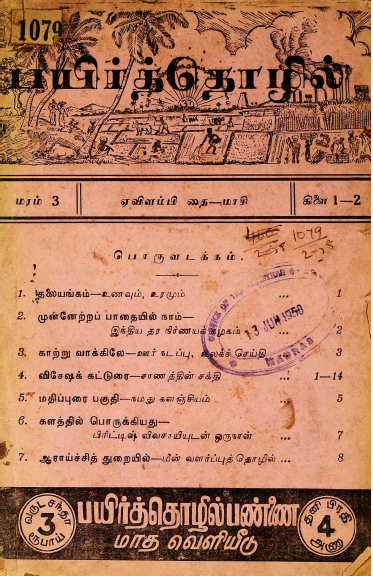 1079
பயிர்த்தொழில்
மரம் 3 ஏவிளம்பி தை—மாசி கிளை 1—2
1079
பொருளடக்கம்.
1. தலையங்கம்—உணவும், உரமும் ... 1
2. முன்னேற்றப் பாதையில் நாம்—
இந்திய தர நிர்ணயக் கழகம் ... 2
3. காற்று வாக்கிலே—ஊர் நடப்பு, உலகச் செய்தி 3
4. விசேஷக் கட்டுரை—சாணத்தின் சக்தி ... 1—14
5. மதிப்புரை பகுதி—நமது களஞ்சியம் ... 5
6. களத்தில் பொருக்கியது—
பிரிட்டிஷ் விவசாயியுடன் ஒருநாள் ... 7
7. ஆராய்ச்சித் துறையில்—மீன் வளர்ப்புத்தொழில் ... 8
13 JUN 1958
MADRAS
வருட சந்தா
3
ரூபாய்
பயிர்த்தொழில்பண்ணை
மாத வெளியீடு
தனி பிரதி
4
அணா